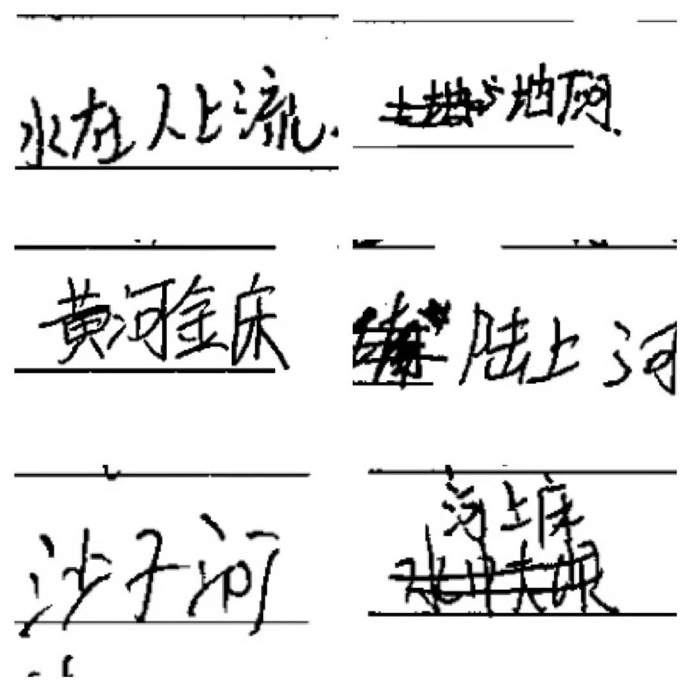 水在人上流.
地河
黄河金床
陆上河
沙子河
河上床